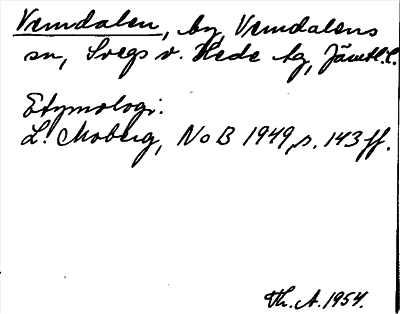 Vemdalen, by, Vemdalens
sn, Svegs o. Hede tg, Jämtl. l.
Etymologi:
L. Moberg, NoB 1949, s. 143 ff.
Th. A. 1954.